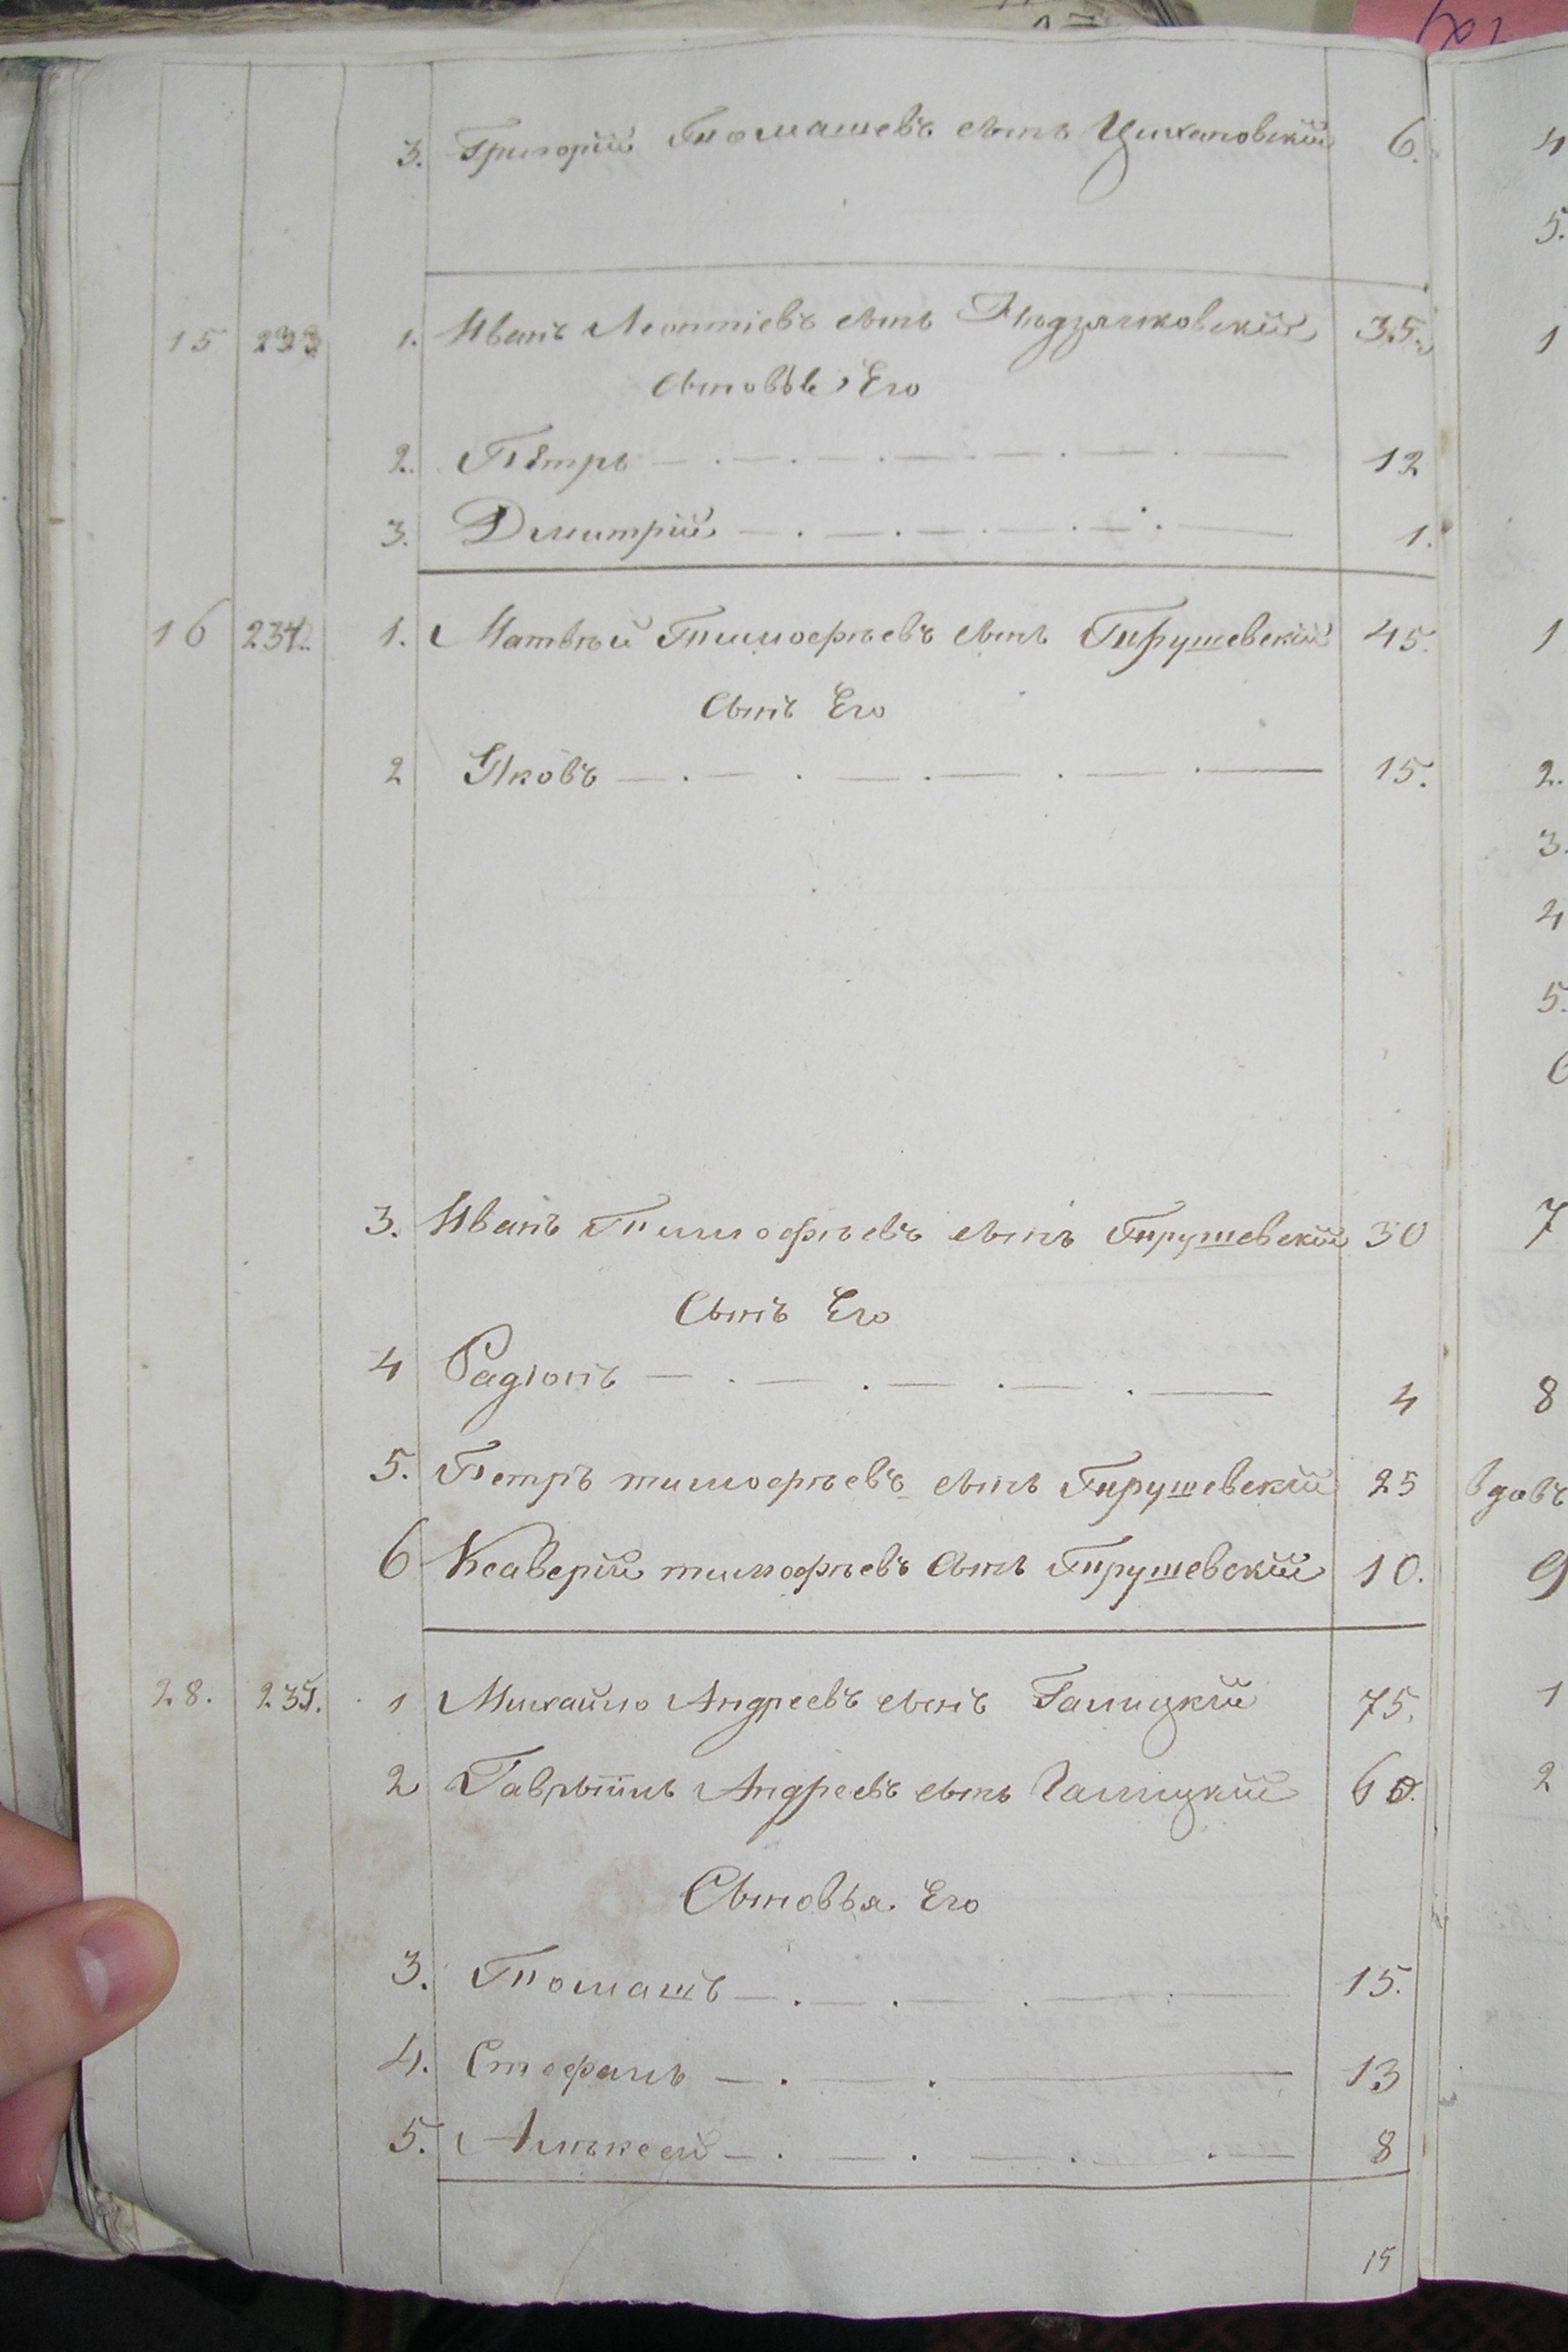 3. Григорій Томашевъ сынъ Цихановскій 6.
15 233 1. Иванъ Леонтіевъ сынъ 35.
Сыновья Его
2. Петръ 12
3. Дмитрій 1.
16 234. 1. Матвѣй Тимофѣевъ сынъ Прушевскій 45.
Сынъ Его
2 Яковъ 15.
3. Иванъ Тимофѣевъ сынъ Прушевскій 30
Сынъ Его
4 Радіонъ 4
5. Петръ тимофѣевъ сынъ Прушевскій 25
6 Ксаверій тимофѣевъ Сынъ Прушевскій 10.
28. 235. 1 Михайло Андреевъ сынъ Галицкій 75.
2 Андреевъ сынъ Галицкій 60.
Сыновья Его
3. Томашъ 15.
4. Стефанъ 13
5. Алѣксей 8
15
4
5.
1
1
2.
3.
4
5.
6
7
8
вдовъ
9
1
2